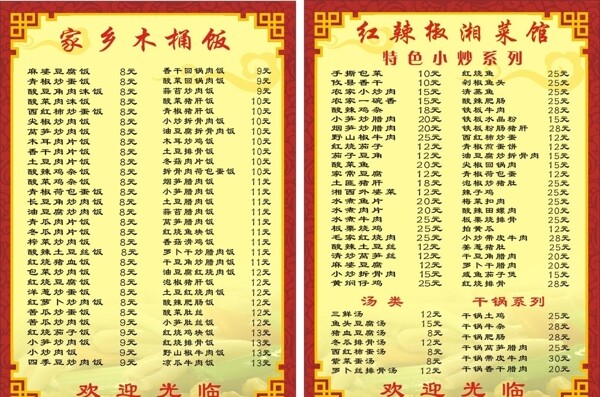 家乡木桶饭
麻婆豆腐饭 8元 香干回锅肉饭 9元
青椒炒蛋饭 8元 酸菜回锅肉饭 9元
酸豆角肉沫饭 8元 蒜苔炒肉饭 10元
酸菜肉沫饭 8元 酸菜猪肝饭 10元
西红柿炒蛋饭 8元 青椒猪肝饭 10元
尖椒炒肉饭 8元 小炒拆骨肉饭 10元
莴笋炒肉饭 8元 油豆腐拆骨肉饭 10元
木耳肉片饭 8元 木耳炒鸡饭 10元
香干肉片饭 8元 土豆排骨饭 10元
土豆肉片饭 8元 冬菇肉片饭 10元
酸辣鸡杂饭 8元 拆骨肉荷包蛋饭 10元
酸菜鸡杂饭 8元 烟笋腊肉饭 11元
青椒荷包蛋饭 8元 小笋腊肉饭 11元
长豆角炒肉饭 8元 土豆腊肉饭 11元
油豆腐炒肉饭 8元 蒜苔腊肉饭 11元
青瓜肉片饭 8元 莴笋腊肉饭 11元
冬瓜肉片饭 8元 红烧鱼块饭 11元
榨菜炒肉饭 8元 香菇滑鸡饭 11元
酸辣土豆丝饭 8元 萝卜干炒腊肉饭 11元
红烧猪血饭 8元 干豆角炒腊肉饭 11元
包菜炒肉饭 8元 豆腐红烧肉饭 12元
红烧豆腐饭 8元 泡椒猪肝饭 12元
洋葱炒蛋饭 8元 土豆红烧肉饭 12元
红萝卜炒肉饭 8元 酸辣肥肠饭 12元
苦瓜炒蛋饭 8元 酸菜肚丝饭 12元
苦瓜炒肉饭 9元 小笋肚丝饭 12元
红烧茄子饭 9元 红烧鸡块饭 13元
小炒肉饭 9元 野山椒牛肉饭 13元
四季豆炒肉饭 9元 凉瓜牛肉饭 13元
欢迎光临
红辣椒湘菜馆
特色小炒系列
手撕包菜 10元 红烧鱼 25元
攸县香干 10元 剁椒鱼头 25元
农家小炒肉 15元 清蒸鱼 25元
农家一碗香 15元 酸辣肥肠 25元
酸辣鸡杂 18元 铁板牛肉 28元
小笋炒腊肉 20元 铁板水晶粉 15元
烟笋炒腊肉 20元 铁板粉肠猪肝 28元
野山椒牛肉 25元 西红柿炒蛋 12元
红烧茄子 12元 青椒煎蛋饼 12元
茄子豆角 12元 油豆腐炒拆骨肉 15元
酸菜鱼 20元 尖椒回锅肉 15元
家常豆腐 12元 青椒荷包蛋 12元
土匪猪肝 18元 泡椒炒猪肚 25元
湘西外婆菜 12元 辣子鸡 25元
水煮肉片 20元 梅菜扣肉 25元
水煮鱼片 20元 酸辣田螺肉 20元
水煮牛肉 25元 板栗烧排骨 25元
板栗烧鸡 25元 拍黄瓜 12元
毛家红烧肉 25元 小炒带皮牛肉 28元
酸辣土豆丝 12元 姜葱猪肚 25元
清炒莴笋丝 12元 干豆角腊肉 20元
麻婆豆腐 12元 萝卜干腊肉 20元
小炒拆骨肉 20元 咸鱼茄子煲 15元
黄焖仔鸡 25元 红烧排骨 28元
汤类 干锅系列
三鲜汤 12元 干锅土鸡 25元
鱼头豆腐汤 15元 干锅牛杂 28元
猪血豆腐汤 8元 干锅肥肠 28元
冬瓜排骨汤 12元 干锅莴笋腊肉 25元
西红柿蛋汤 8元 干锅带皮牛肉 30元
紫菜蛋汤 8元 干锅香干腊肉 20元
萝卜排骨汤 12元
欢迎光临